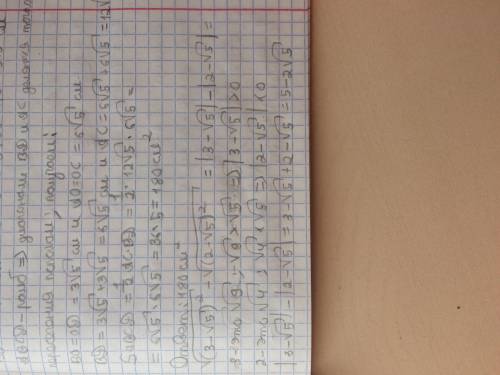 ABCD - ромб => диагонали BD и AC точкой
пересечения пополам;
BO = OD = 3√5 см и AO = OC = 6√5 см
BD = 3√5 + 3√5 = 6√5 см и AC = 6√5 + 6√5 = 12√
S ABCD = 1/2 AC · BD = 1/2 · 12√5 · 6√5 =
= 6√5 · 6√5 = 36 · 5 = 180 см²
Ответ: 180 см²
√(3-√5)² - √(2-√5)² = |3-√5| - |2-√5| =
3 - это √9, √9 > √5 => |3-√5| > 0
2 - это √4, √4 < √5 => |2-√5| < 0
|3-√5| - |2-√5| = 3-√5 + 2-√5 = 5-2√5